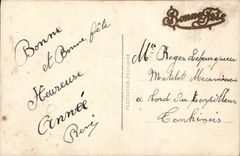 Bonne Fête
Bonne
et Bonne fête
Heureuse
Année
René
Mr Roger
Matelot Mécanicien
à bord du
Tonkinois